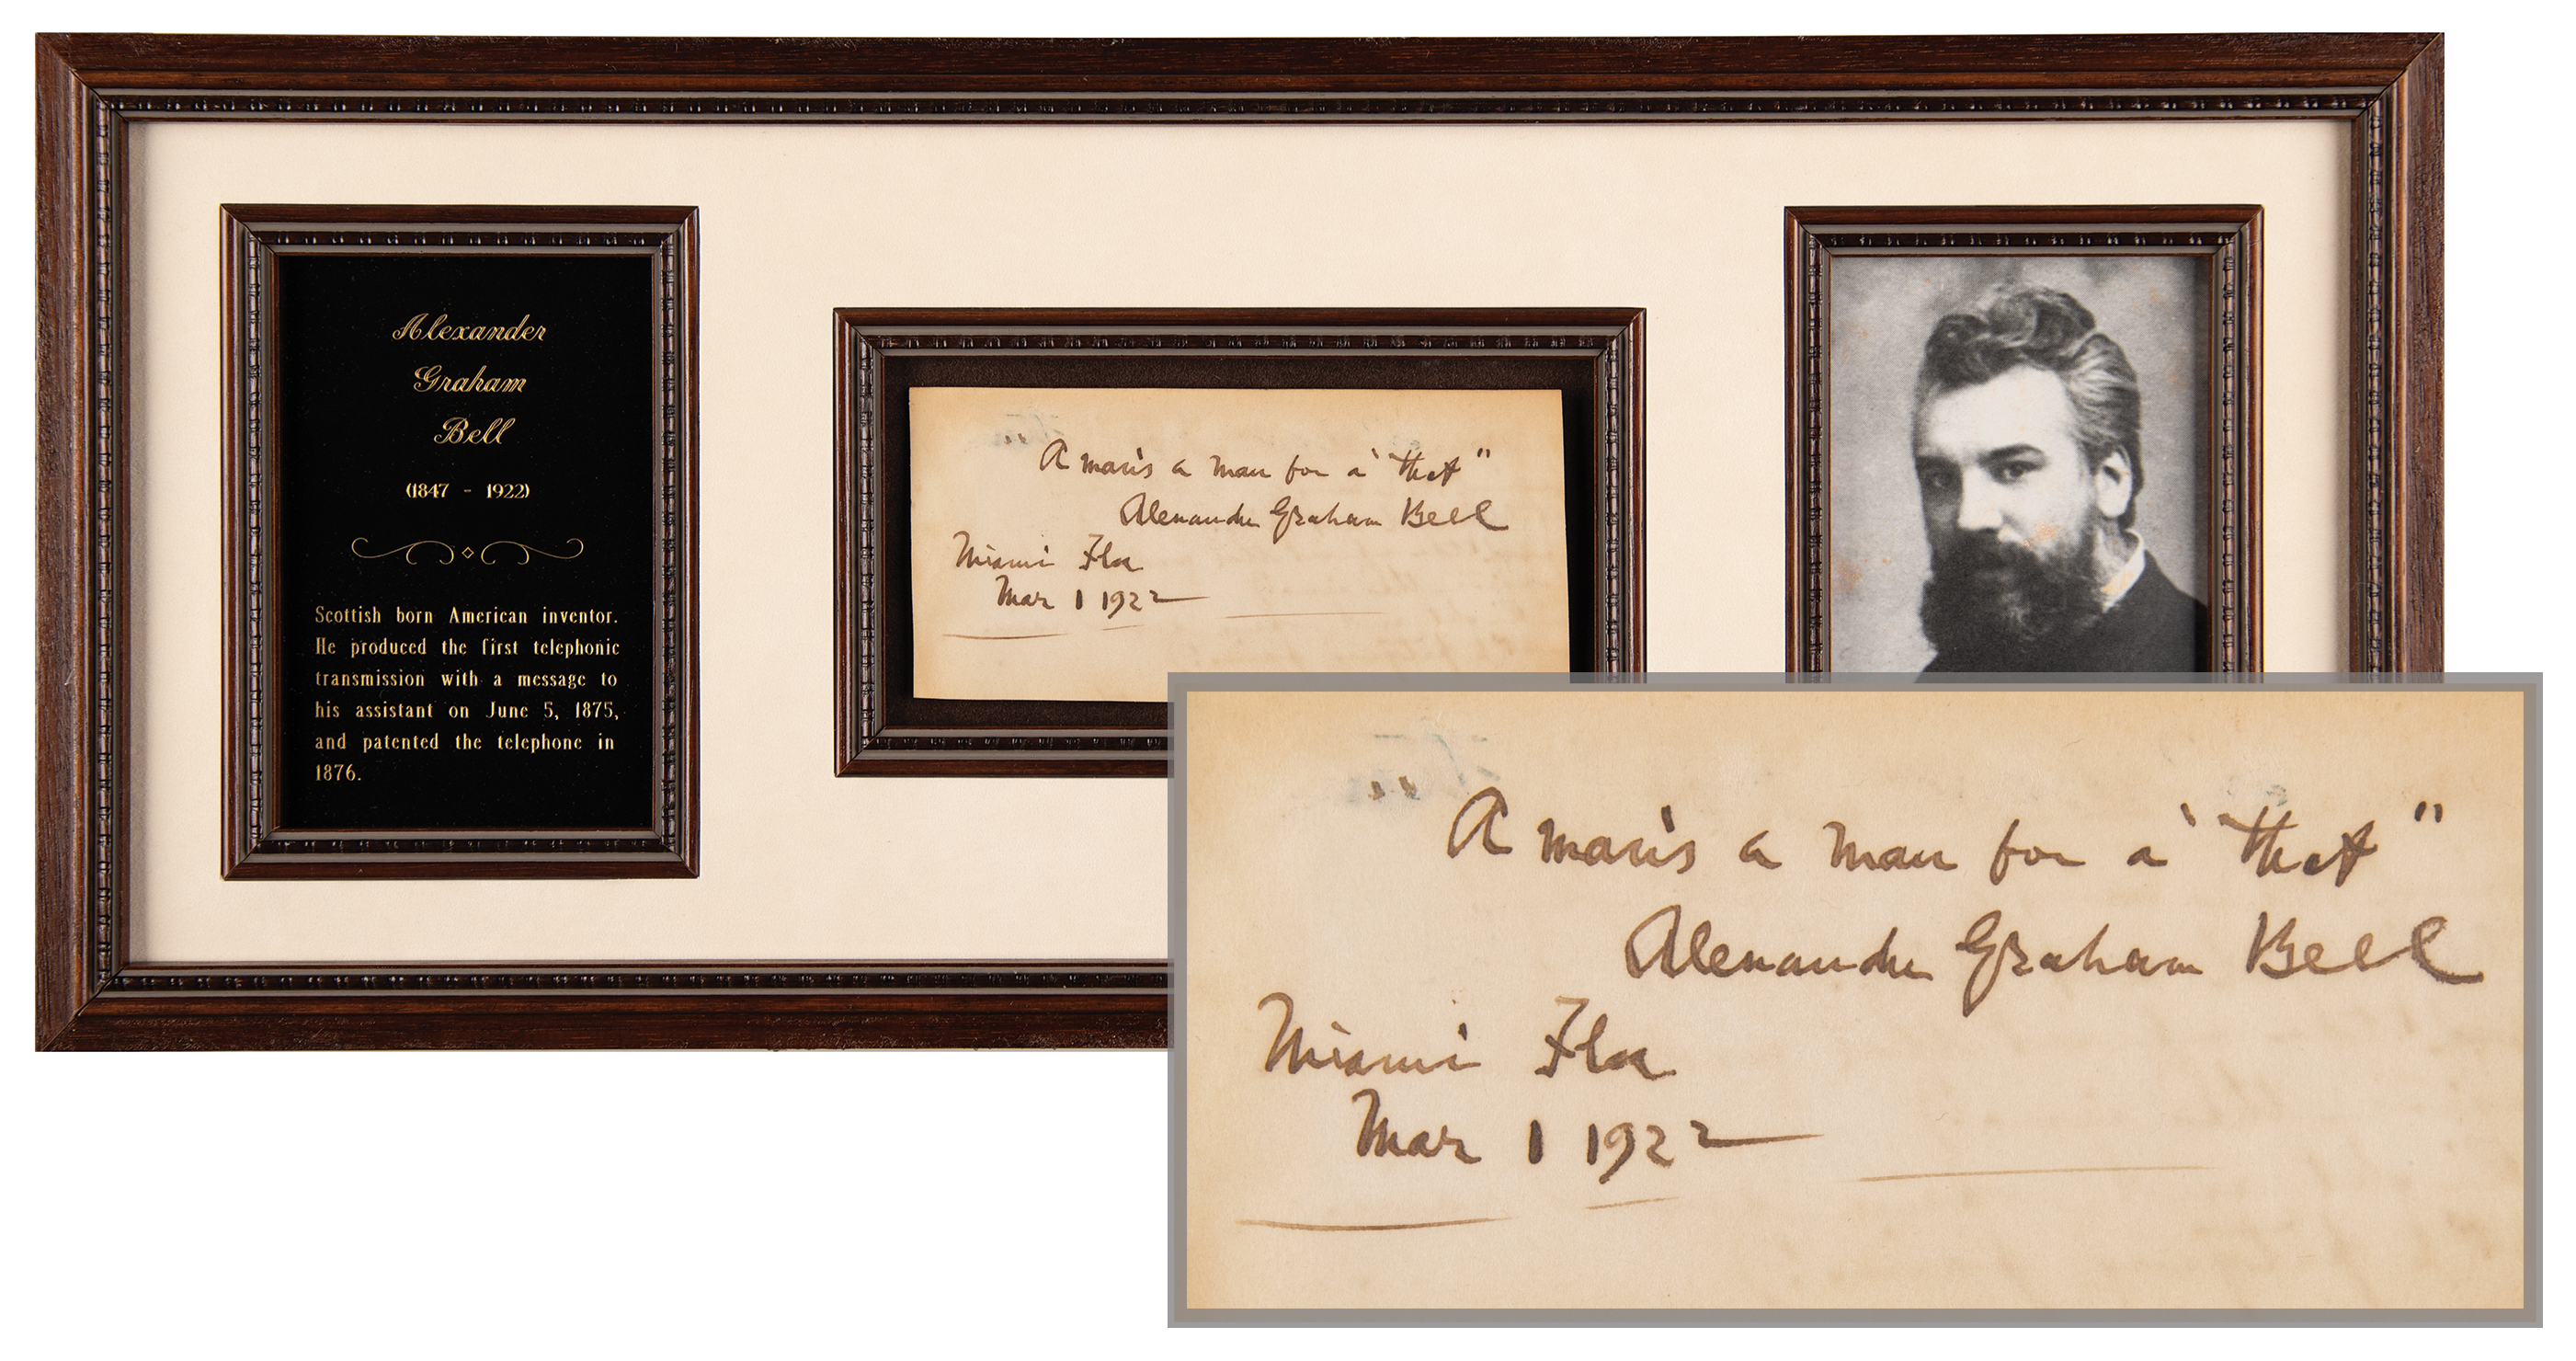 Alexander
Graham
Bell
(1847 - 1922)
Scottish born American inventor.
He produced the first telephonic
transmission with a message to
his assistant on June 5, 1875,
and patented the telephone in
1876.
"A man's a man for a' that"
Alexander Graham Bell
Miami Fla
Mar 1 1922
"A man's a man for a' that"
Alexander Graham Bell
Miami Fla
Mar 1 1922